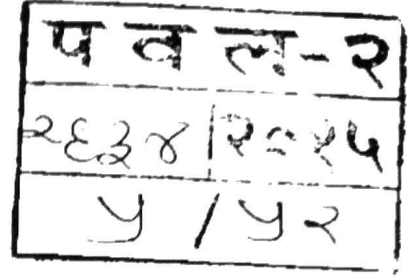 प व ल-२
२६३४/२०१५
५/५२